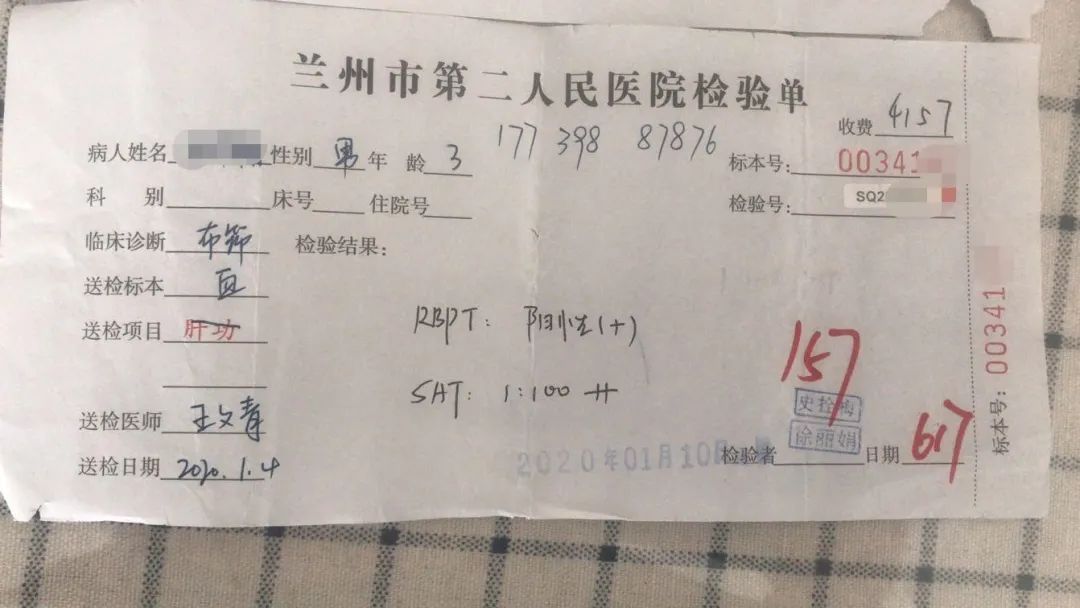 兰州市第二人民医院检验单
177 398 87876
收费 4157
病人姓名 性别 男 年龄 3 标本号: 00341
科别 床号 住院号 检验号: SQ2
临床诊断 布节 检验结果:
送检标本 血
送检项目 肝功
RBPT: 阳性(+)
SAT: 1:100 ++
157
送检医师 王文青
史拴梅
徐丽娟
送检日期 2020.1.4
2020年01月10日
检验者 日期 617
标本号: 00341